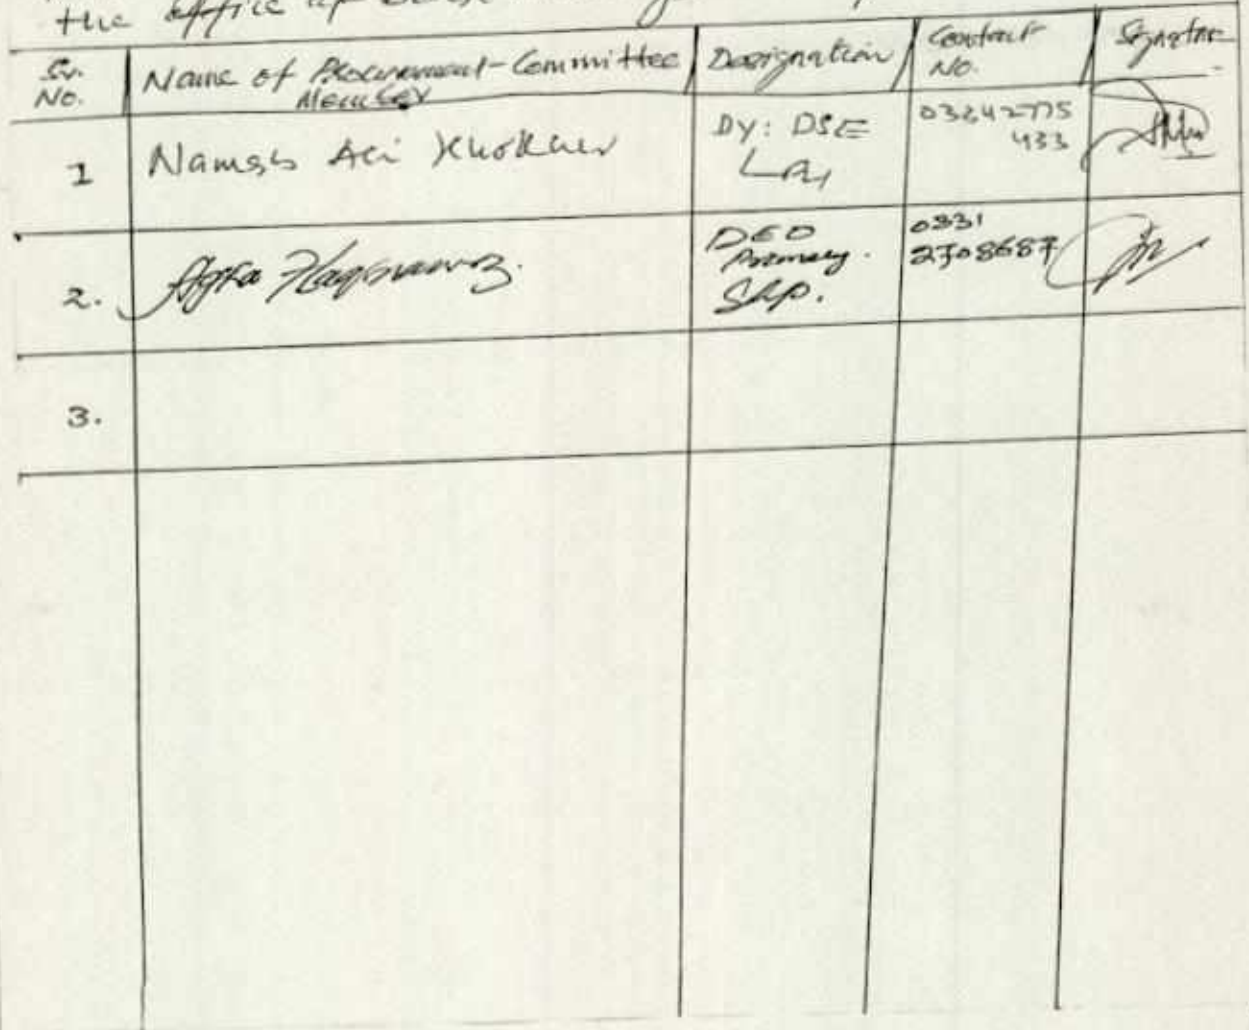 the office of
Sr. No. Name of Procurement Committee Member Designation Contact No. Signature
1 Ali Khokhar DY: DSE 03342775433
2. Agha Haqnawaz. DEO Primary. Shp. 0331 2708687
3.